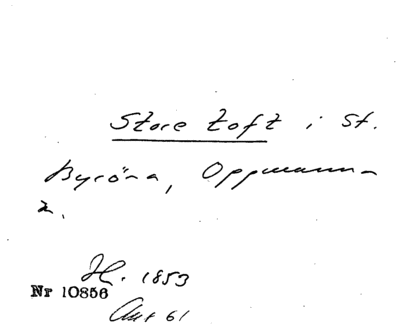 Store toft i St.
Byröna, Oppmanna
H. 1853
Nr 10856
61